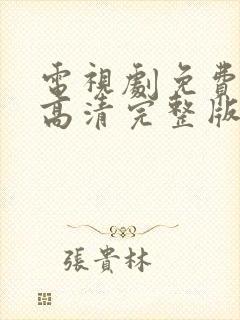 電視劇免費
高清完整版
張貴林